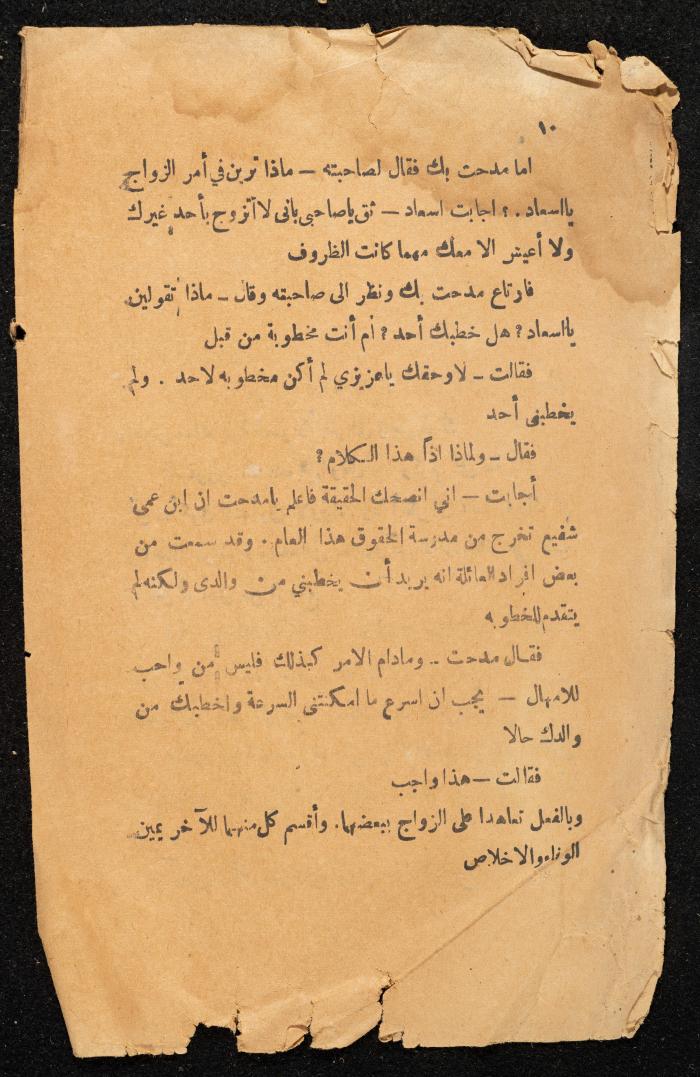 ١٠
اما مدحت بك فقال لصاحبته — ماذا ترين في أمر الزواج
يااسعاد . ؟ اجابت اسعاد — ثق ياصاحبى بانى لا أتزوج بأحد غيرك
ولا أعيش الا معك مهما كانت الظروف
فارتاع مدحت بك ونظر الى صاحبقه وقال — ماذا تقولين
يااسعاد ؟ هل خطبك أحد ؟ أم أنت مخطوبة من قبل
فقالت — لاوحقك ياعزيزي لم أكن مخطوبه لاحد . ولم
يخطبنى أحد
فقال — ولماذا اذاً هذا الكلام ؟
أجابت — اني انصحك الحقيقة فاعلم يامدحت ان ابن عمى
شفيع تخرج من مدرسة الحقوق هذا العام . وقد سمعت من
بعض افراد العائلة انه يريد أن يخطبني من والدى ولكنه لم
يتقدم للخطوبه
فقال مدحت — ومادام الامر كذلك فليس من واجب
للامهال — يجب ان اسرع ما امكنتنى السرعة واخطبك من
والدك حالا
فقالت — هذا واجب
وبالفعل تعاهدا على الزواج ببعضهما. وأقسم كل منهما للآخر يمين
الوفاء والاخلاص